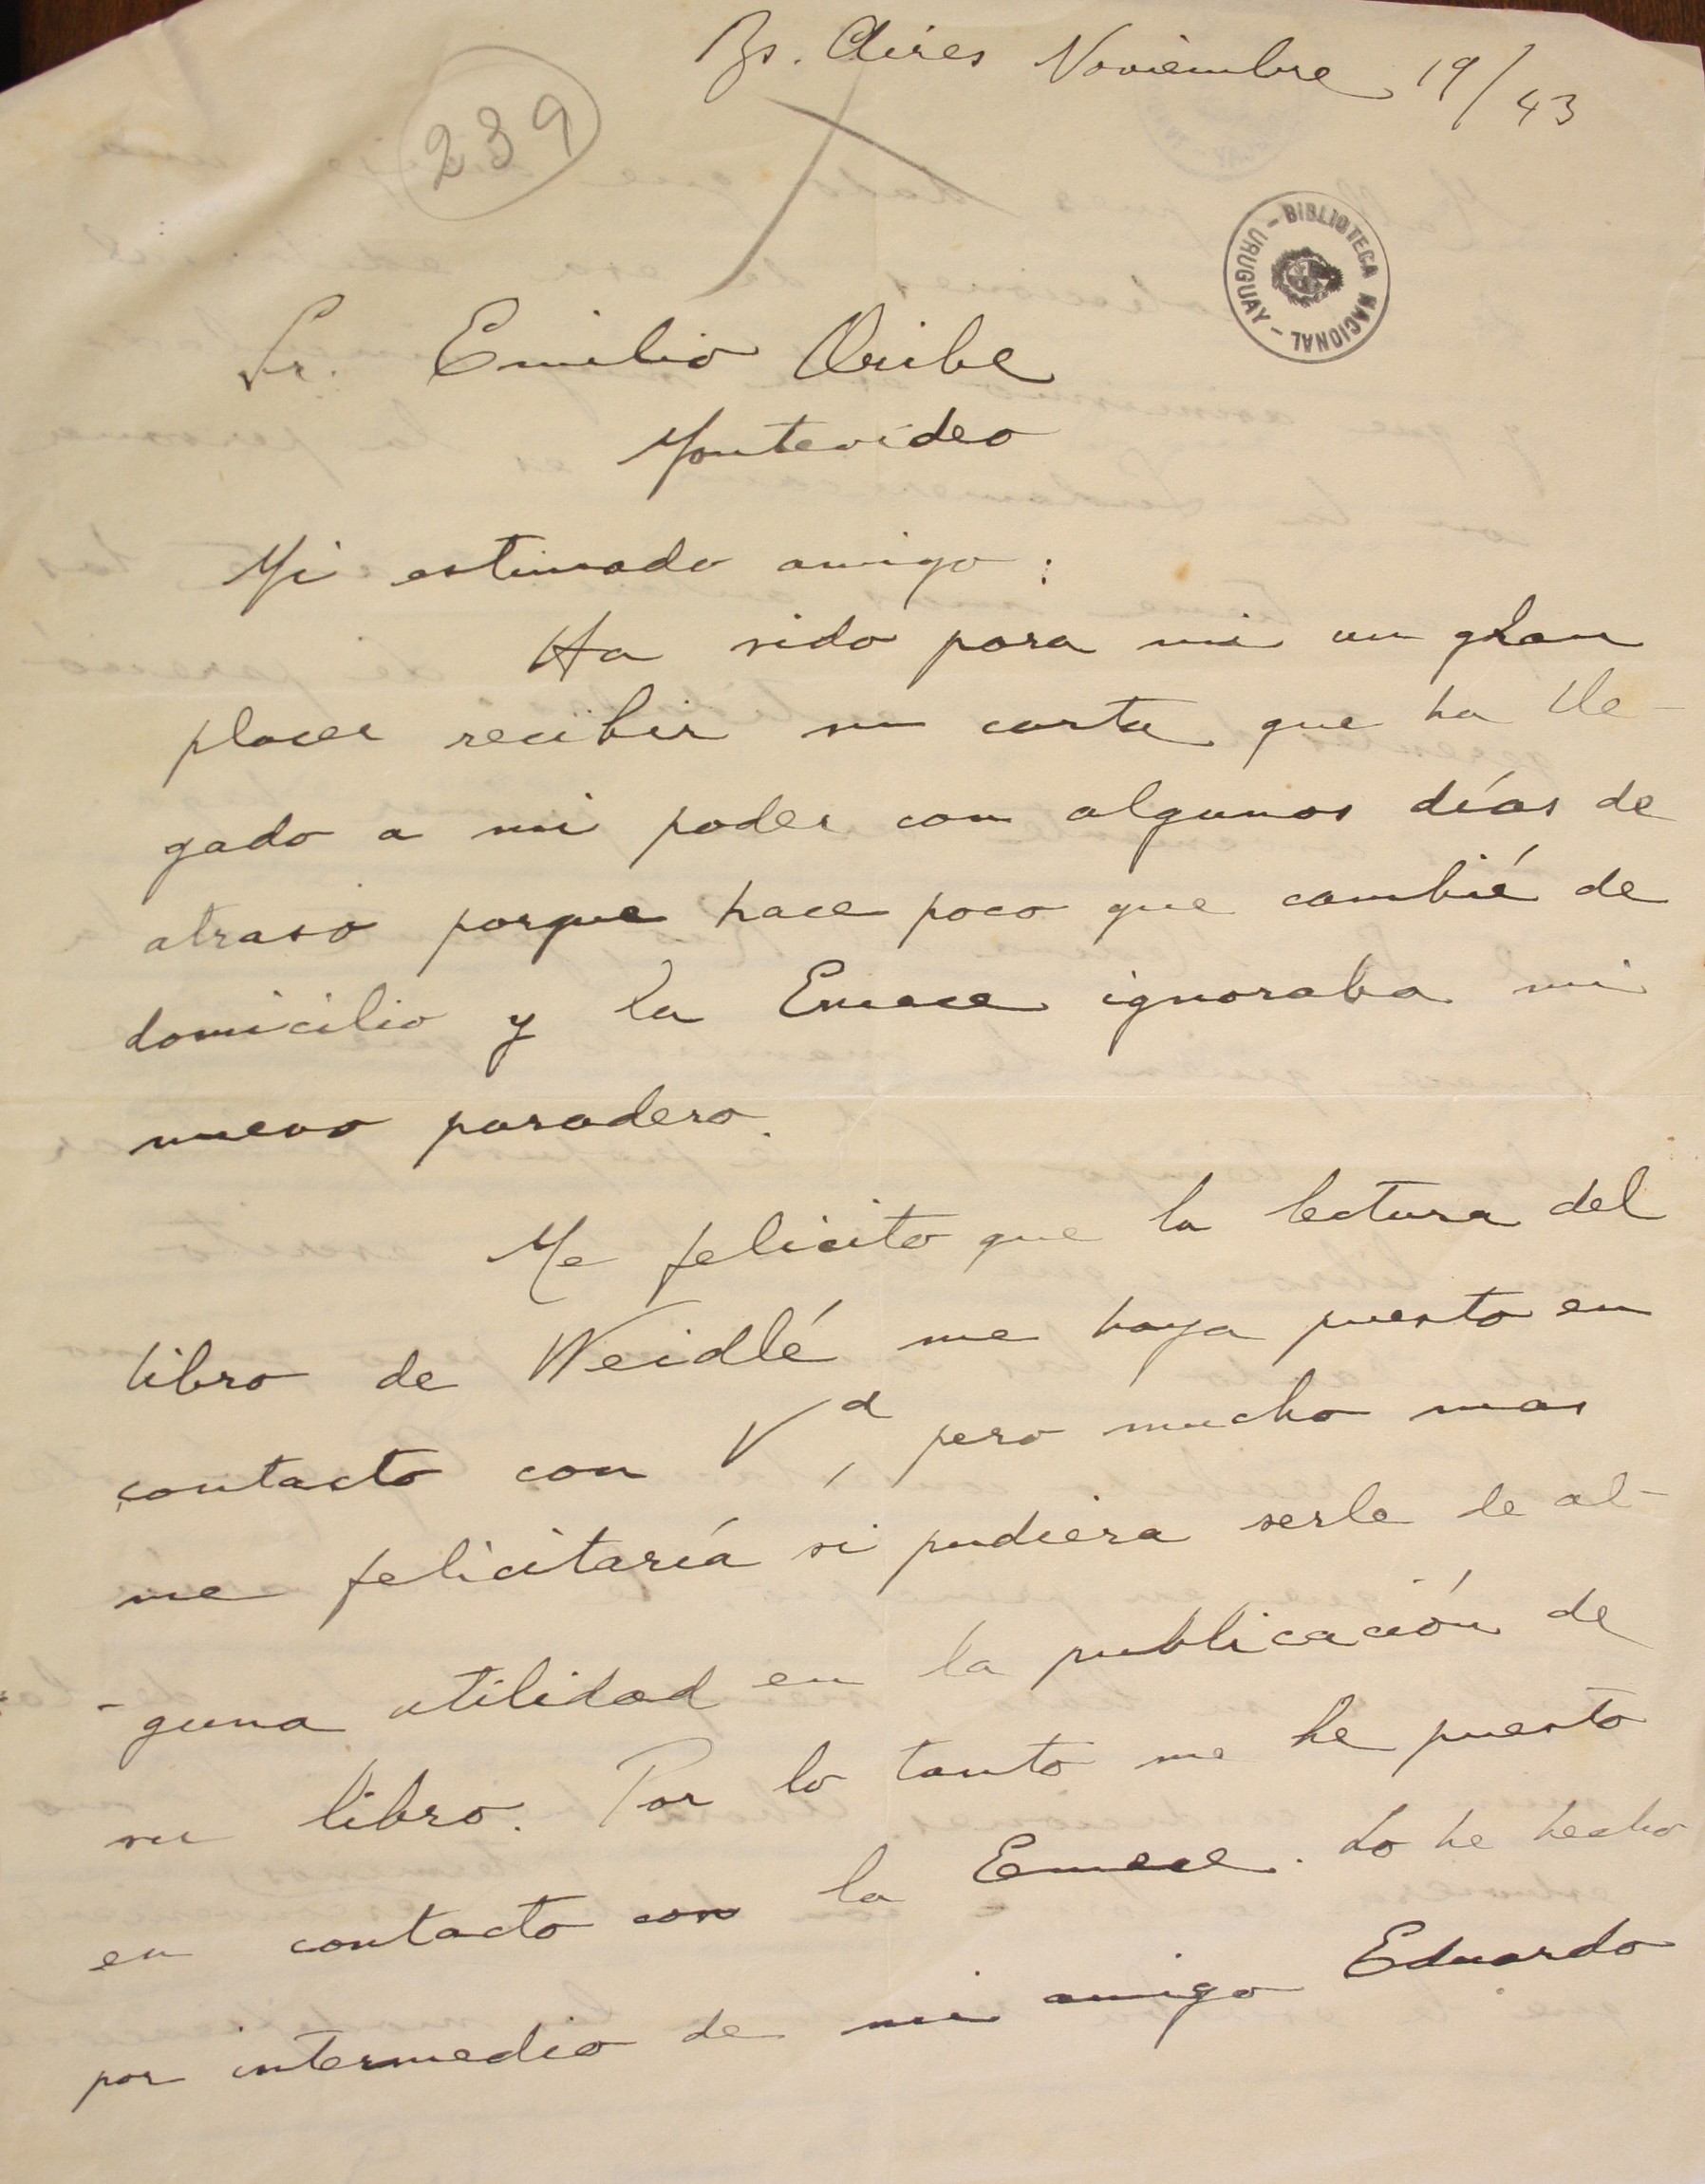 Bs. Aires Noviembre 19/43
239
BIBLIOTECA NACIONAL - URUGUAY -
Sr. Emilio Oribe
Montevideo
Mi estimado amigo:
Ha sido para mi un gran
placer recibir su carta que ha lle-
gado a mi poder con algunos días de
atraso porque hace poco que cambié de
domicilio y la Emece ignoraba mi
nuevo paradero.
Me felicito que la lectura del
libro de Weidlé me haya puesto en
contacto con Vd, pero mucho mas
me felicitaría si pudiera serle de al-
-guna utilidad en la publicación de
su libro. Por lo tanto me he puesto
en contacto con la Emece. Lo he hecho
por intermedio de mi amigo Eduardo